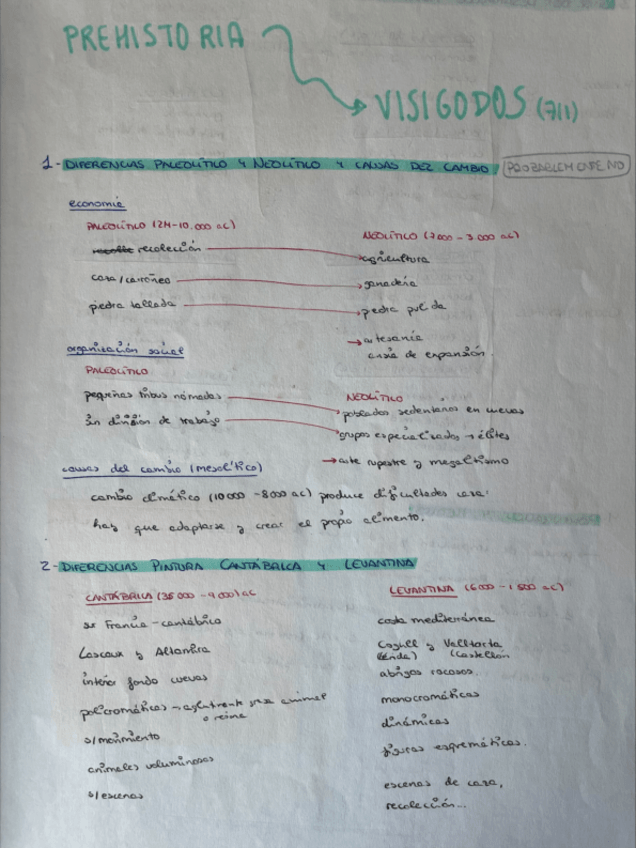 PREHISTORIA
VISIGODOS (7/1)
1- DIFERENCIAS PALEOLÍTICO Y NEOLÍTICO Y CAUSAS DEL CAMBIO (PROBABLEMENTE NO)
economía
PALEOLÍTICO (2M-10.000 aC)
NEOLÍTICO (7000 - 3000 aC)
recolección
agricultura
caza/carroñeo
ganadería
piedra tallada
piedra pulida
artesanía
ansia de expansión.
organización social
PALEOLÍTICO
pequeñas tribus nómadas
NEOLÍTICO
poblados sedentarios en cuevas
sin división de trabajo
grupos especializados → élites
arte rupestre y megalitismo
causas del cambio (mesolítico)
cambio climático (10000 - 8000 aC) produce dificultades caza:
hay que adaptarse y crear el propio alimento.
2- DIFERENCIAS PINTURA CANTÁBRICA Y LEVANTINA
CANTÁBRICA (35000 - 9000) aC
LEVANTINA (6000 - 1500 aC)
Francia-cantábrico
costa mediterránea
Lascaux y Altamira
Cogull y Valltorta
(lérida) (Castellón
interior fondo cuevas
abrigos rocosos.
policromáticas → aglutinante grasa animal
o resina
monocromáticas
s/movimiento
dinámicas
animales voluminosos
figuras esquemáticas.
s/escenas
escenas de caza,
recolección...